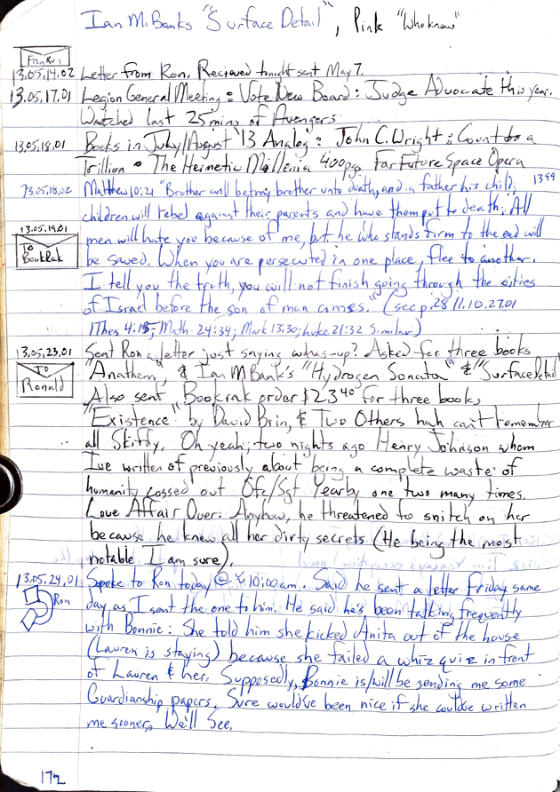 Ian M. Banks "Surface Detail", Pink "Who know"
From Ron
13.05.14.02 Letter from Ron. Recieved tonight sent May 7.
13.05.17.01 Legion General Meeting: Vote New Board: Judge Advocate this year.
Watched last 25 mins of Avengers
13.05.18.01 Books in July/August '13 Analog: John C. Wright: Count to a
Trillion • The Hermetic Millenia 400pg. Far Future Space Opera
13.05.18.02 Matthew 10:21 "Brother will betray brother unto death, and a father his child, 1359
children will rebel against their parents and have them put to death. All
13.05.19.01 men will hate you because of me, but he who stands firm to the end will
To BookRak be saved. When you are persecuted in one place, flee to another.
I tell you the truth, you will not finish going through the cities
of Israel before the son of man comes." (see p.28 11.10.27.01
1 Thes 4:15; Math. 24:34; Mark 13:30; Luke 21:32 Similar)
13.05.23.01 Sent Ron a letter just saying whus-up? Asked for three books
To Ronald "Anathem", & Ian M Bank's "Hydrogen Sonata" & "Surface Detail"
Also sent Bookrak order $23.40 for three books,
"Existence" by David Brin, & Two Others huh can't remember
all Skitty. Oh yeah; two nights ago Henry Johnson whom
I've written of previously about being a complete waste of
humanity cossed out Ofc/Sgt Yearby one two many times.
Love Affair Over. Anyhow, he threatened to snitch on her
because he knew all her dirty secrets (He being the most
notable I am sure).
13.05.24.01 Spoke to Ron today @ 10:00am. Said he sent a letter Friday same
Ron day as I sent the one to him. He said he's been talking frequently
with Bonnie: She told him she kicked Anita out of the house
(Lauren is staying) because she failed a whiz quiz in front
of Lauren & her. Supposedly, Bonnie is/will be sending me some
Guardianship papers. Sure would've been nice if she could've written
me sooner. We'll See.
172